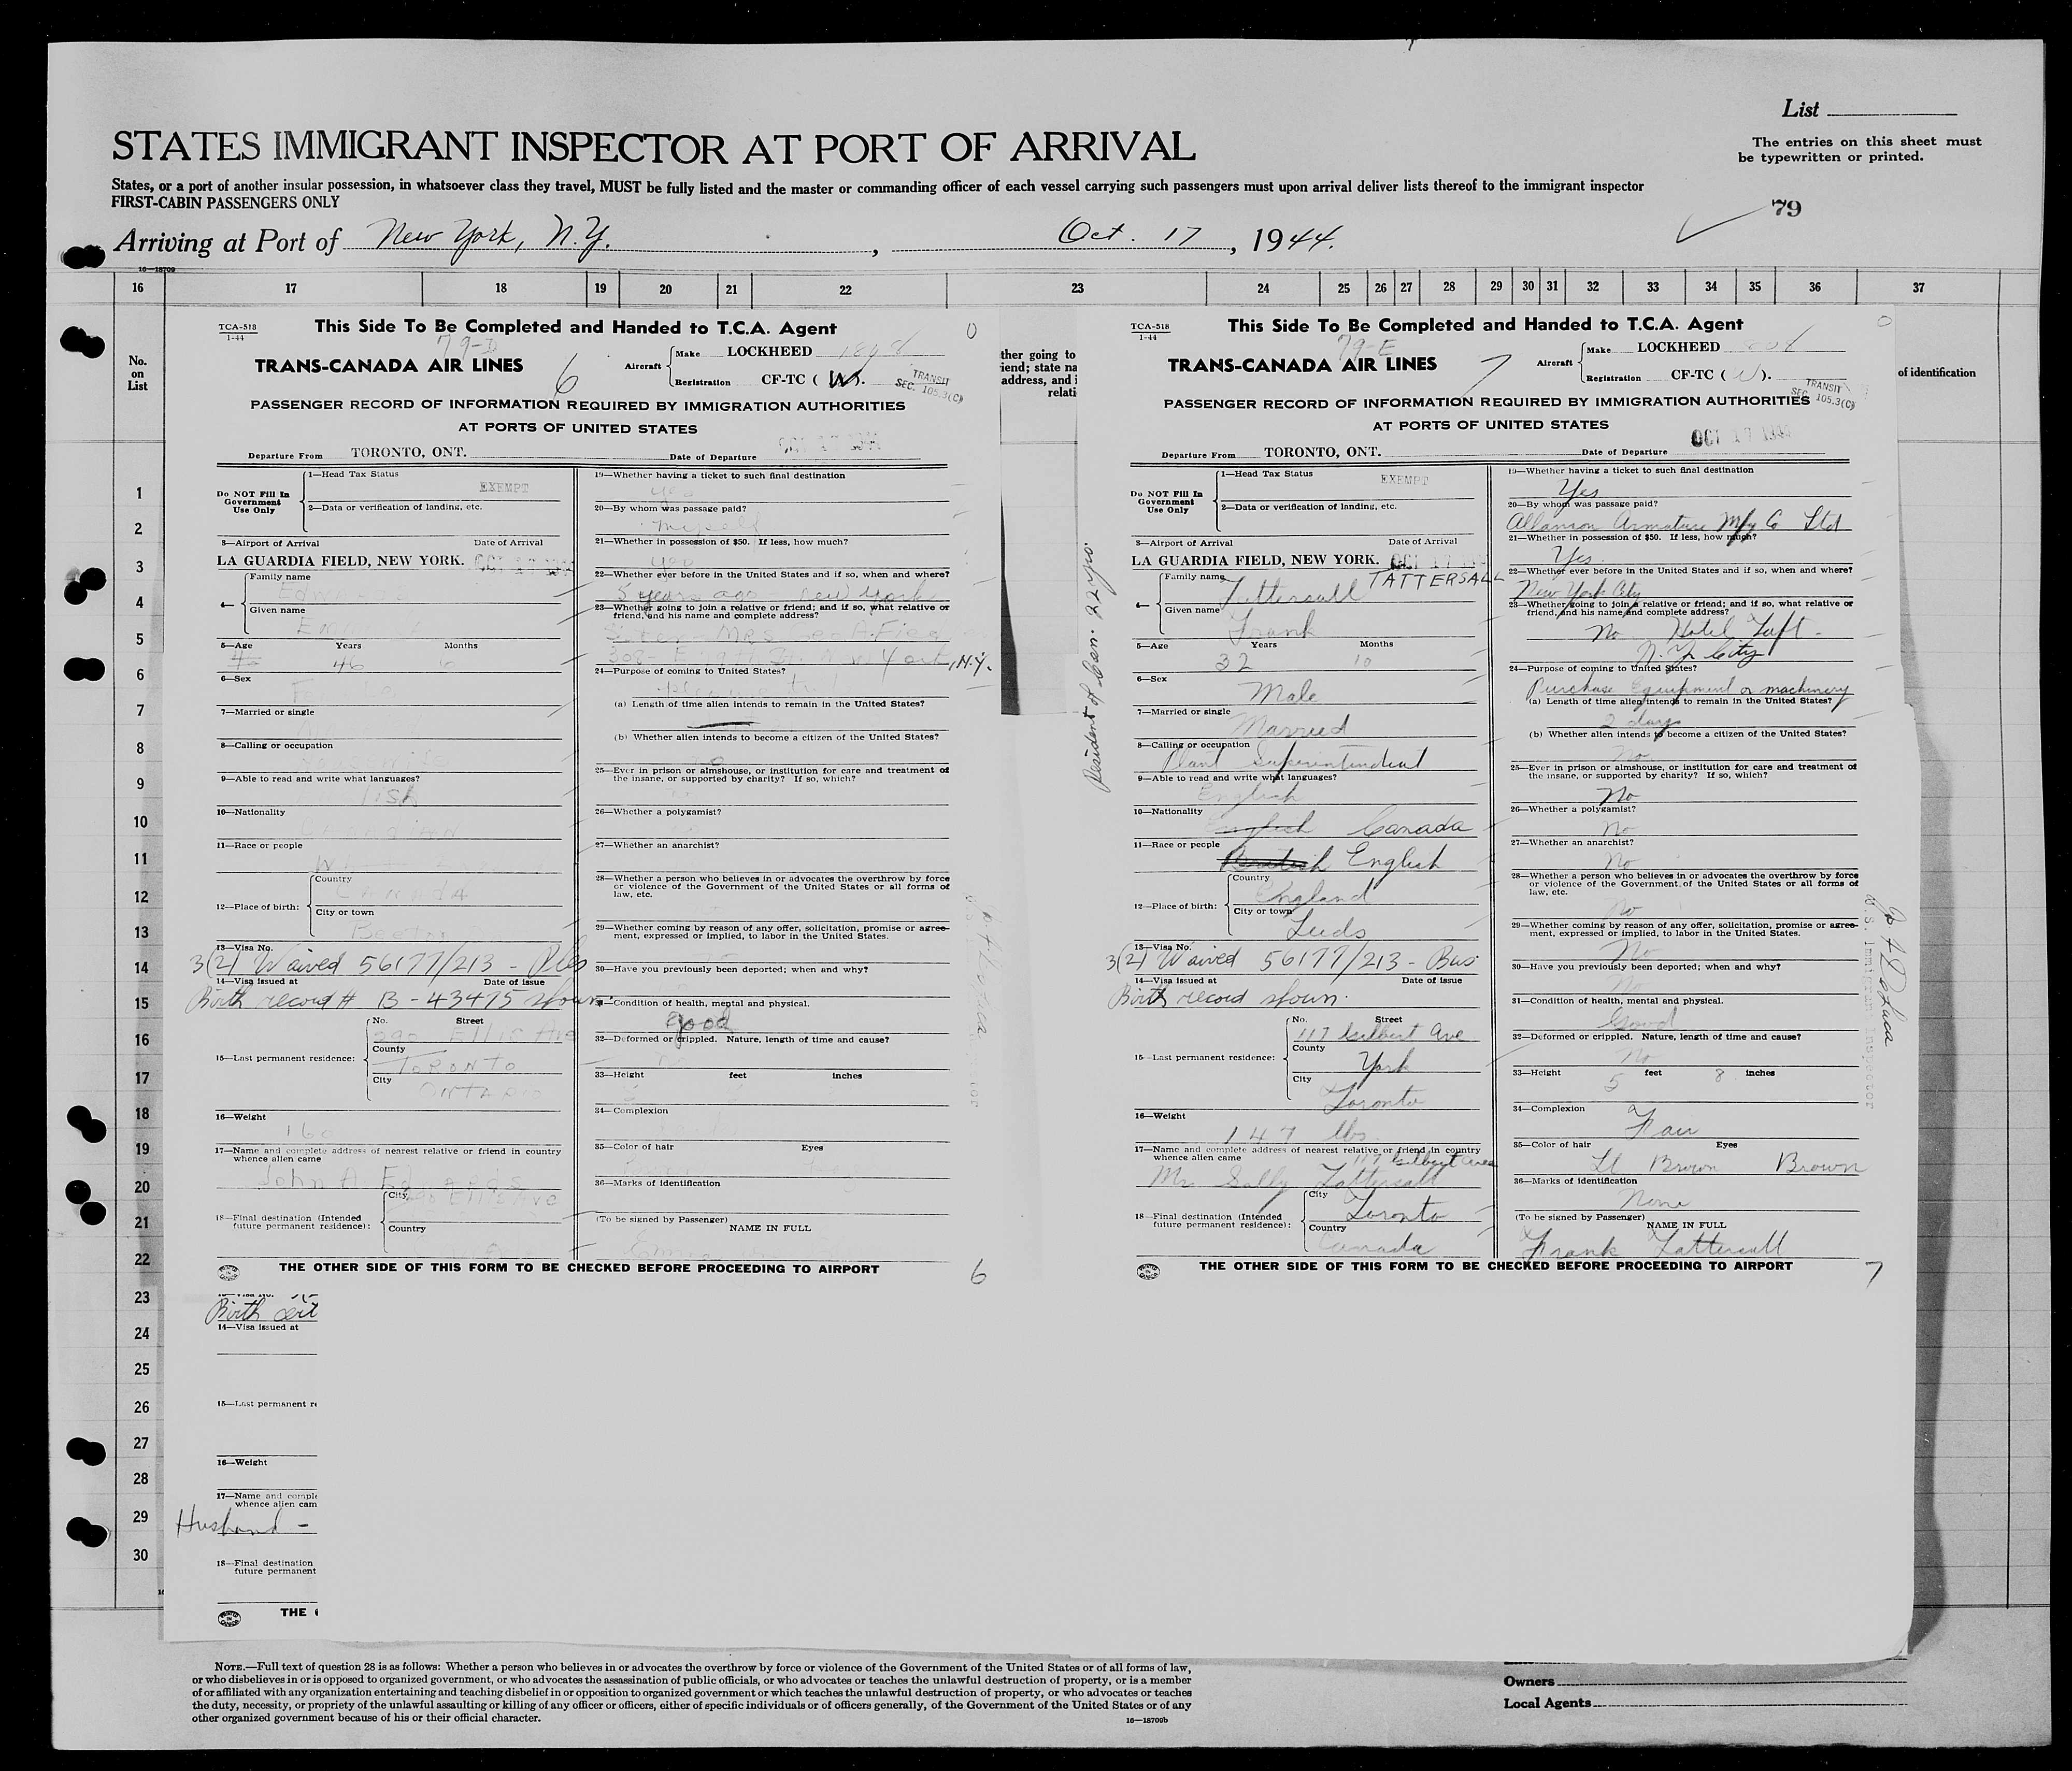 List
The entries on this sheet must
be typewritten or printed.
STATES IMMIGRANT INSPECTOR AT PORT OF ARRIVAL
States, or a port of another insular possession, in whatsoever class they travel, MUST be fully listed and the master or commanding officer of each vessel carrying such passengers must upon arrival deliver lists thereof to the immigrant inspector
FIRST-CABIN PASSENGERS ONLY
79
Arriving at Port of New York, N.Y., Oct. 17, 1944.
16—18709
16 17 18 19 20 21 22 23 24 25 26 27 28 29 30 31 32 33 34 35 36 37
No.
on
List
1
2
3
4
5
6
7
8
9
10
11
12
13
14
15
16
17
18
19
20
21
22
23
24
25
26
27
28
29
30
TCA-518
1-44
This Side To Be Completed and Handed to T.C.A. Agent
79-D
TRANS-CANADA AIR LINES
6
Aircraft
Make LOCKHEED
Registration CF-TC ( W ).
TRANSIT
SEC. 105.3(C)
PASSENGER RECORD OF INFORMATION REQUIRED BY IMMIGRATION AUTHORITIES
AT PORTS OF UNITED STATES
Departure From TORONTO, ONT. Date of Departure OCT 17
Do NOT Fill In
Government
Use Only
1—Head Tax Status
EXEMPT
2—Data or verification of landing, etc.
3—Airport of Arrival Date of Arrival
LA GUARDIA FIELD, NEW YORK. OCT 17
4—
Family name
Given name
5—Age Years Months
46 6
6—Sex
7—Married or single
8—Calling or occupation
9—Able to read and write what languages?
10—Nationality
Canadian
11—Race or people
12—Place of birth:
Country
CANADA
City or town
Beeton
13—Visa No.
3(2) Waived 56177/213 - Ples
14—Visa issued at Date of issue
Birth record # B-43475 shown.
15—Last permanent residence:
No. Street
Ellis Ave
County
TORONTO
City
ONTARIO
16—Weight
160
17—Name and complete address of nearest relative or friend in country
whence alien came
John A. Edwards
18—Final destination (Intended
future permanent residence):
City
Ellis Ave
Country
19—Whether having a ticket to such final destination
yes
20—By whom was passage paid?
myself
21—Whether in possession of $50. If less, how much?
yes
22—Whether ever before in the United States and if so, when and where?
5 years ago New York
23—Whether going to join a relative or friend; and if so, what relative or
friend, and his name and complete address?
Sister - Mrs
308- New York, N.Y.
24—Purpose of coming to United States?
(a) Length of time alien intends to remain in the United States?
(b) Whether alien intends to become a citizen of the United States?
25—Ever in prison or almshouse, or institution for care and treatment of
the insane, or supported by charity? If so, which?
26—Whether a polygamist?
27—Whether an anarchist?
28—Whether a person who believes in or advocates the overthrow by force
or violence of the Government of the United States or all forms of
law, etc.
29—Whether coming by reason of any offer, solicitation, promise or agree-
ment, expressed or implied, to labor in the United States.
30—Have you previously been deported; when and why?
31—Condition of health, mental and physical.
good
32—Deformed or crippled. Nature, length of time and cause?
33—Height feet inches
34—Complexion
35—Color of hair Eyes
36—Marks of identification
(To be signed by Passenger) NAME IN FULL
THE OTHER SIDE OF THIS FORM TO BE CHECKED BEFORE PROCEEDING TO AIRPORT
6
Birth cert
14—Visa issued at
15—Last permanent re
16—Weight
17—Name and comple
whence alien cam
Husband -
18—Final destination
future permanent
THE
ther going to
iend; state na
address, and i
relati
of identification
Resident of Can. 22 yrs.
TCA-518
1-44
This Side To Be Completed and Handed to T.C.A. Agent
79-E
TRANS-CANADA AIR LINES
7
Aircraft
Make LOCKHEED
Registration CF-TC ( W ).
TRANSIT
SEC. 105.3(C)
PASSENGER RECORD OF INFORMATION REQUIRED BY IMMIGRATION AUTHORITIES
AT PORTS OF UNITED STATES
Departure From TORONTO, ONT. Date of Departure OCT 17 1944
Do NOT Fill In
Government
Use Only
1—Head Tax Status
EXEMPT
2—Data or verification of landing, etc.
3—Airport of Arrival Date of Arrival
LA GUARDIA FIELD, NEW YORK. OCT 17
4—
Family name
Tattersall TATTERSALL
Given name
Frank
5—Age Years Months
32 10
6—Sex
Male
7—Married or single
Married
8—Calling or occupation
Plant Superintendent
9—Able to read and write what languages?
English
10—Nationality
English Canada
11—Race or people
British English
12—Place of birth:
Country
England
City or town
Leeds
13—Visa No.
3(2) Waived 56177/213 - Bus.
14—Visa issued at Date of issue
Birth record shown.
15—Last permanent residence:
No. Street
117 Gilbert Ave
County
York
City
Toronto
16—Weight
147 lbs.
17—Name and complete address of nearest relative or friend in country
whence alien came
117 Gilbert Ave
Mrs Sally Tattersall
18—Final destination (Intended
future permanent residence):
City
Toronto
Country
Canada
19—Whether having a ticket to such final destination
Yes
20—By whom was passage paid?
Allanson Armature Mfg Co Ltd
21—Whether in possession of $50. If less, how much?
Yes
22—Whether ever before in the United States and if so, when and where?
New York City
23—Whether going to join a relative or friend; and if so, what relative or
friend, and his name and complete address?
No Hotel Taft -
N.Y. City
24—Purpose of coming to United States?
Purchase Equipment or machinery
(a) Length of time alien intends to remain in the United States?
2 days
(b) Whether alien intends to become a citizen of the United States?
No
25—Ever in prison or almshouse, or institution for care and treatment of
the insane, or supported by charity? If so, which?
No
26—Whether a polygamist?
No
27—Whether an anarchist?
No
28—Whether a person who believes in or advocates the overthrow by force
or violence of the Government of the United States or all forms of
law, etc.
No
29—Whether coming by reason of any offer, solicitation, promise or agree-
ment, expressed or implied, to labor in the United States.
No
30—Have you previously been deported; when and why?
No
31—Condition of health, mental and physical.
Good
32—Deformed or crippled. Nature, length of time and cause?
No
33—Height 5 feet 8 inches
34—Complexion
Fair
35—Color of hair Eyes
Lt Brown Brown
36—Marks of identification
None
(To be signed by Passenger) NAME IN FULL
Frank Tattersall
THE OTHER SIDE OF THIS FORM TO BE CHECKED BEFORE PROCEEDING TO AIRPORT
7
U.S. Immigrant Inspector
NOTE.—Full text of question 28 is as follows: Whether a person who believes in or advocates the overthrow by force or violence of the Government of the United States or of all forms of law,
or who disbelieves in or is opposed to organized government, or who advocates the assassination of public officials, or who advocates or teaches the unlawful destruction of property, or is a member
of or affiliated with any organization entertaining and teaching disbelief in or opposition to organized government or which teaches the unlawful destruction of property, or who advocates or teaches
the duty, necessity, or propriety of the unlawful assaulting or killing of any officer or officers, either of specific individuals or of officers generally, of the Government of the United States or of any
other organized government because of his or their official character.
16—18709b
Owners
Local Agents